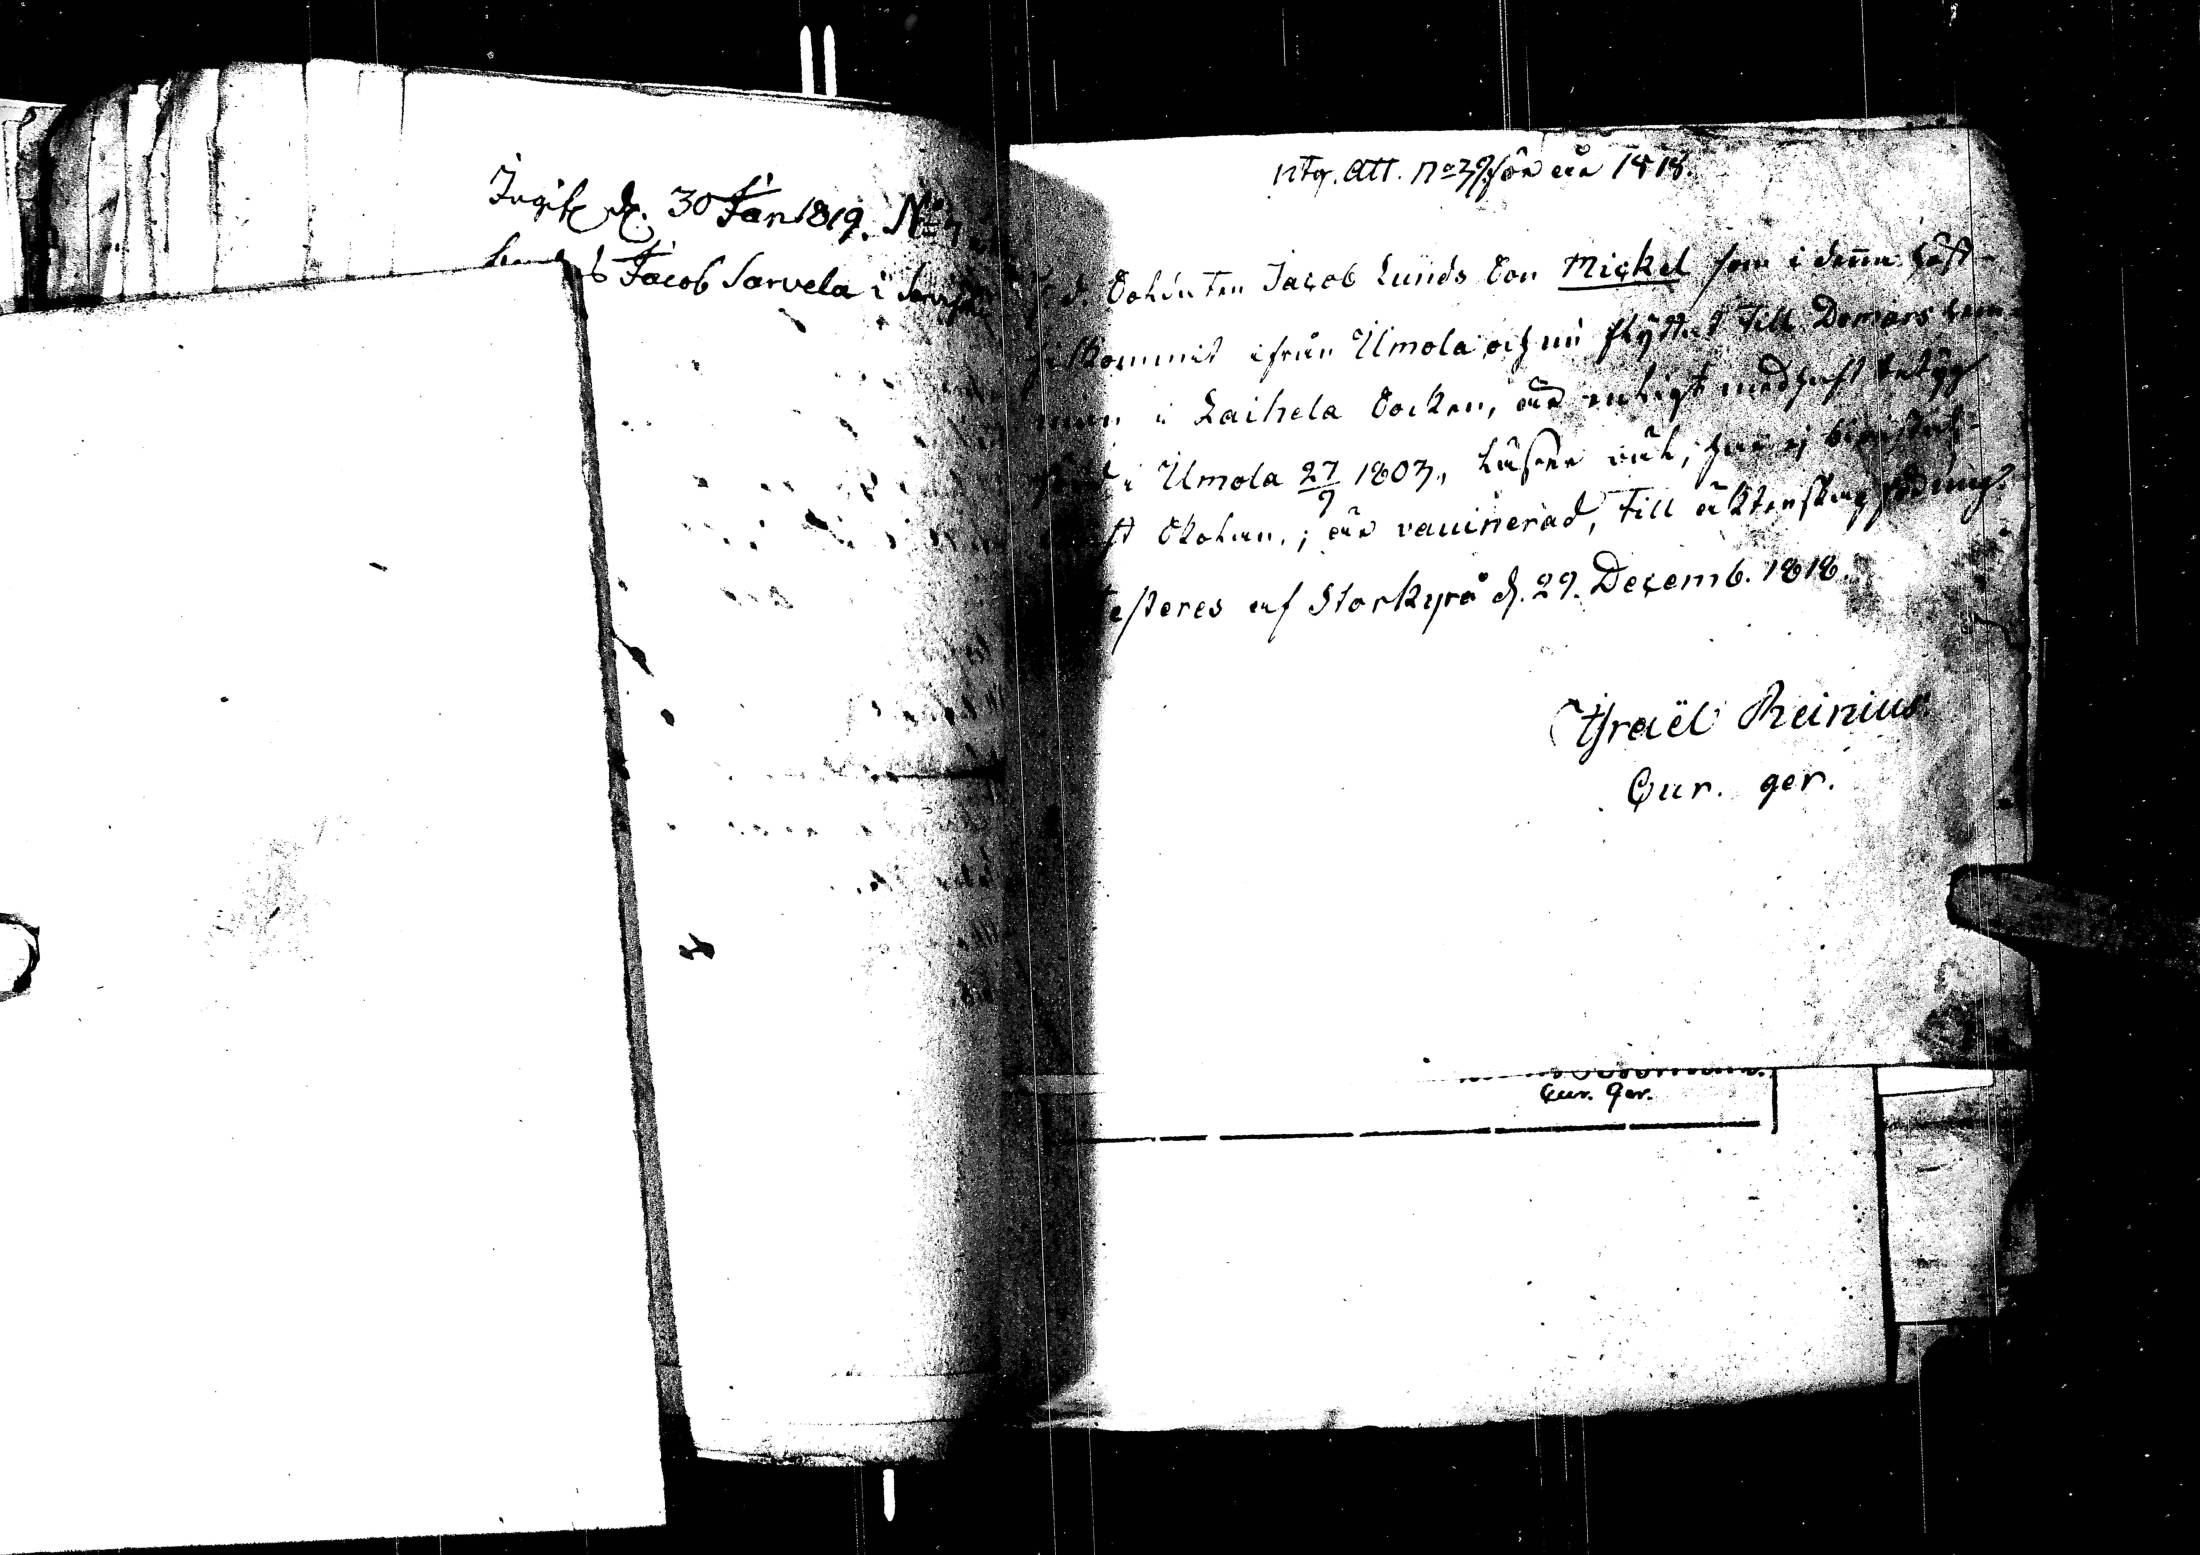 Ingifv. d. 30 Jan 1819. No 7
Jacob Sarvela i
utg. Att. No 39 för år 1818.
f. d. Soldaten Jacob Lunds Son Mickel som i denna höst
kommit ifrån Ulmola och nu flyttat till Domars hem-
man i Laihela Socken, är enligt medhaft betyg
född i Ulmola 27/9 1803, läser väl, har ej bevistat
Skolan; är vaccinerad, till äktenskap
esteres af Storkyro d. 29. Decemb. 1818.
Israël Reinius
Cur. ger.
Cur. Ger.